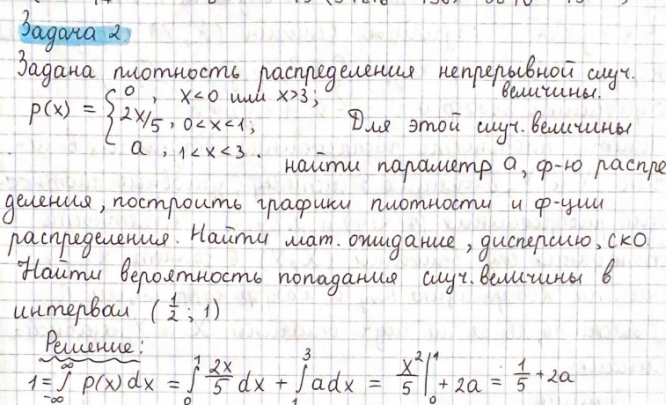 Задача 2.
Задана плотность распределения непрерывной случ.
величины.
p(x) = { 0 , x<0 или x>3;
2x/5 , 0<x<1;
a , 1<x<3.
Для этой случ. величины
найти параметр a, ф-ю распре
деления, построить графики плотности и ф-ции
распределения. Найти мат. ожидание, дисперсию, СКО
Найти вероятность попадания случ. величины в
интервал (1/2; 1)
Решение:
1 = ∫_{-∞}^{∞} p(x) dx = ∫_0^1 2x/5 dx + ∫_1^3 a dx = x²/5 |_0^1 + 2a = 1/5 + 2a